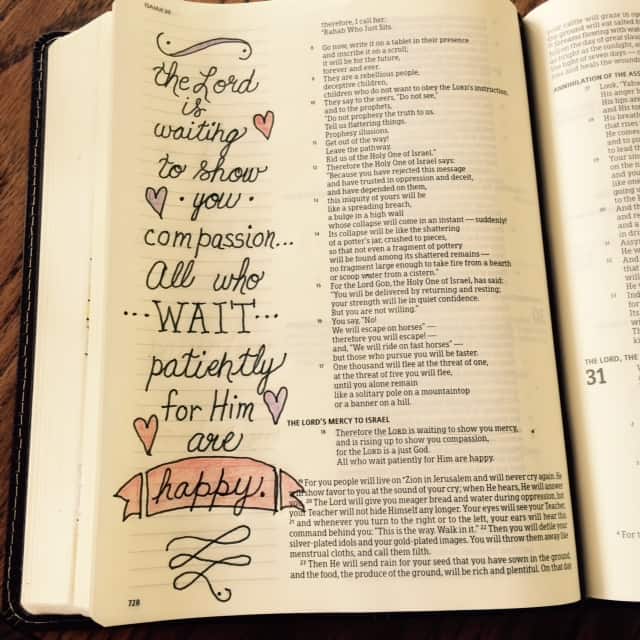 ISAIAH 30
the Lord
is
waiting
to show
· you ·
compassion...
All who
...WAIT...
patiently
for Him
are
happy.
728
therefore, I call her:
"Rahab Who Just Sits.
8 Go now, write it on a tablet in their presence
and inscribe it on a scroll;
it will be for the future,
forever and ever.
9 They are a rebellious people,
deceptive children,
children who do not want to obey the LORD's instruction.
10 They say to the seers, "Do not see,"
and to the prophets,
"Do not prophesy the truth to us.
Tell us flattering things.
Prophesy illusions.
11 Get out of the way!
Leave the pathway.
Rid us of the Holy One of Israel."
12 Therefore the Holy One of Israel says:
"Because you have rejected this message
and have trusted in oppression and deceit,
and have depended on them,
13 this iniquity of yours will be
like a spreading breach,
a bulge in a high wall
whose collapse will come in an instant — suddenly!
14 Its collapse will be like the shattering
of a potter's jar, crushed to pieces,
so that not even a fragment of pottery
will be found among its shattered remains —
no fragment large enough to take fire from a hearth
or scoop water from a cistern."
15 For the Lord GOD, the Holy One of Israel, has said:
"You will be delivered by returning and resting;
your strength will lie in quiet confidence.
But you are not willing."
16 You say, "No!
We will escape on horses" —
therefore you will escape! —
and, "We will ride on fast horses" —
but those who pursue you will be faster.
17 One thousand will flee at the threat of one,
at the threat of five you will flee,
until you alone remain
like a solitary pole on a mountaintop
or a banner on a hill.
THE LORD'S MERCY TO ISRAEL
18 Therefore the LORD is waiting to show you mercy,
and is rising up to show you compassion,
for the LORD is a just God.
All who wait patiently for Him are happy.
19 For you people will live on Zion in Jerusalem and will never cry again. He
will show favor to you at the sound of your cry; when He hears, He will answer
you. 20 The Lord will give you meager bread and water during oppression, but
your Teacher will not hide Himself any longer. Your eyes will see your Teacher,
21 and whenever you turn to the right or to the left, your ears will hear this
command behind you: "This is the way. Walk in it." 22 Then you will defile your
silver-plated idols and your gold-plated images. You will throw them away like
menstrual cloths, and call them filth.
23 Then He will send rain for your seed that you have sown in the ground,
and the food, the produce of the ground, will be rich and plentiful. On that day
ANNIHILATION OF THE ASS
THE LORD, THE
31